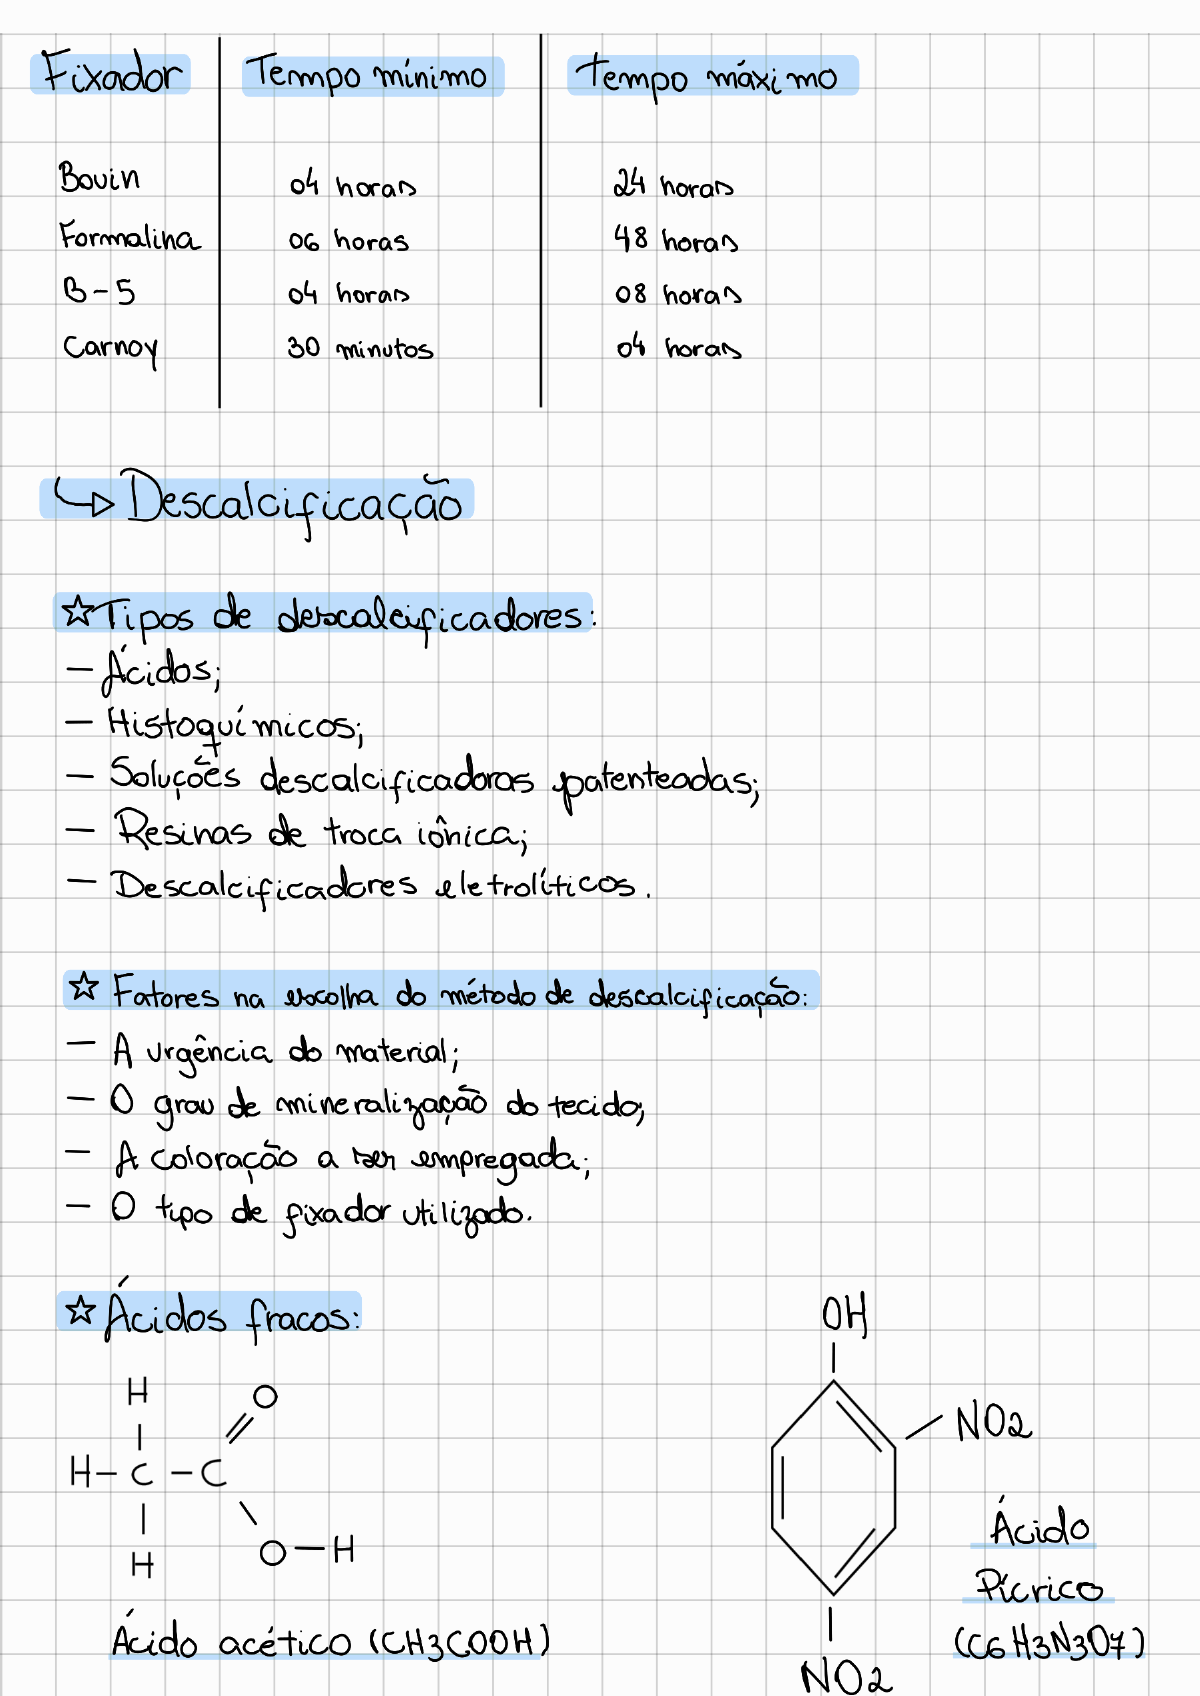 Fixador Tempo mínimo Tempo máximo
Bouin 04 horas 24 horas
Formalina 06 horas 48 horas
B-5 04 horas 08 horas
Carnoy 30 minutos 04 horas
↳ Descalcificação
☆ Tipos de descalcificadores:
- Ácidos;
- Histoquímicos;
- Soluções descalcificadoras patenteadas;
- Resinas de troca iônica;
- Descalcificadores eletrolíticos.
☆ Fatores na escolha do método de descalcificação:
- A urgência do material;
- O grau de mineralização do tecido;
- A coloração a ser empregada;
- O tipo de fixador utilizado.
☆ Ácidos fracos:
H O
H-C-C
H O-H
Ácido acético (CH3COOH)
OH
NO2
NO2
Ácido
Pícrico
(C6H3N3O7)